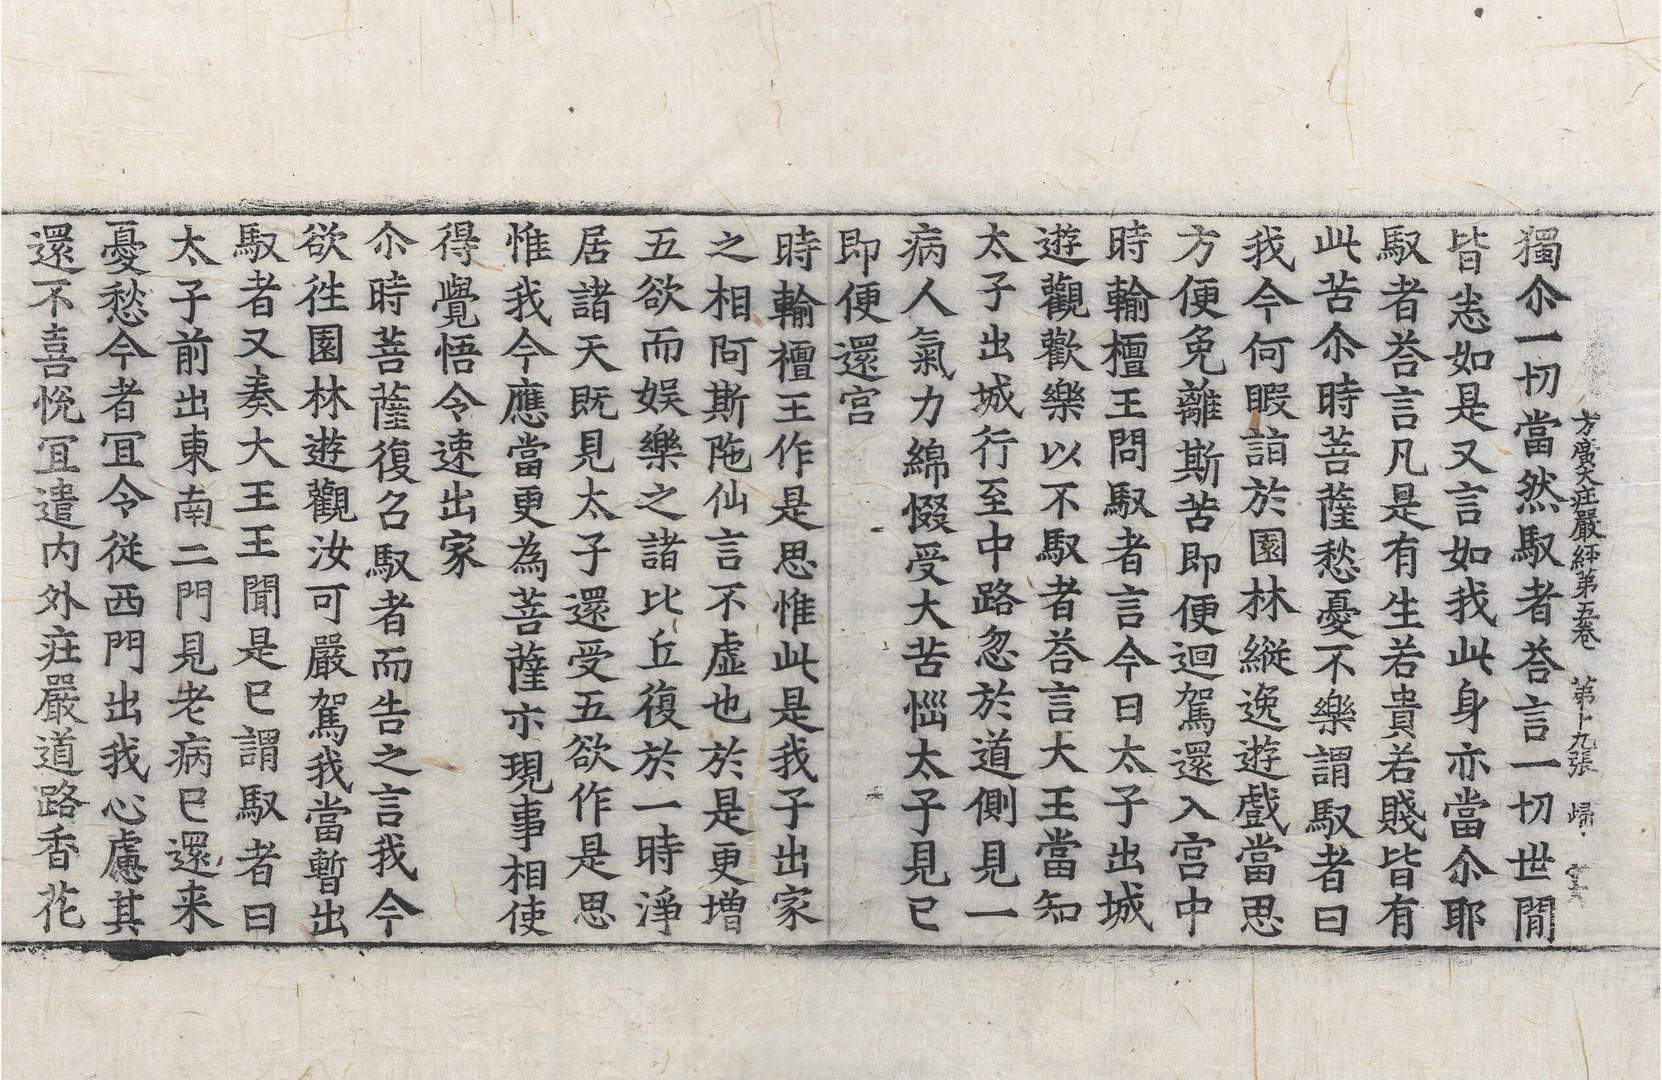 方廣大庄嚴經第五卷 第十九張 歸
獨尒一切當然馭者荅言一切世間
皆悉如是又言如我此身亦當尒耶
馭者荅言凡是有生若貴若賤皆有
此苦尒時菩薩愁憂不樂謂馭者曰
我今何暇詣於園林縱逸遊戲當思
方便免離斯苦即便迴駕還入宫中
時輸檀王問馭者言今日太子出城
遊觀歡樂以不馭者荅言大王當知
太子出城行至中路忽於道側見一
病人氣力綿惙受大苦惱太子見已
即便還宫
時輸檀王作是思惟此是我子出家
之相阿斯陁仙言不虛也於是更增
五欲而娱樂之諸比丘復於一時淨
居諸天既見太子還受五欲作是思
惟我今應當更為菩薩亦現事相使
得覺悟令速出家
尒時菩薩復召馭者而告之言我今
欲往園林遊觀汝可嚴駕我當暫出
馭者又奏大王王聞是已謂馭者曰
太子前出東南二門見老病已還来
憂愁今者冝令從西門出我心慮其
還不喜悅冝遣内外庄嚴道路香花